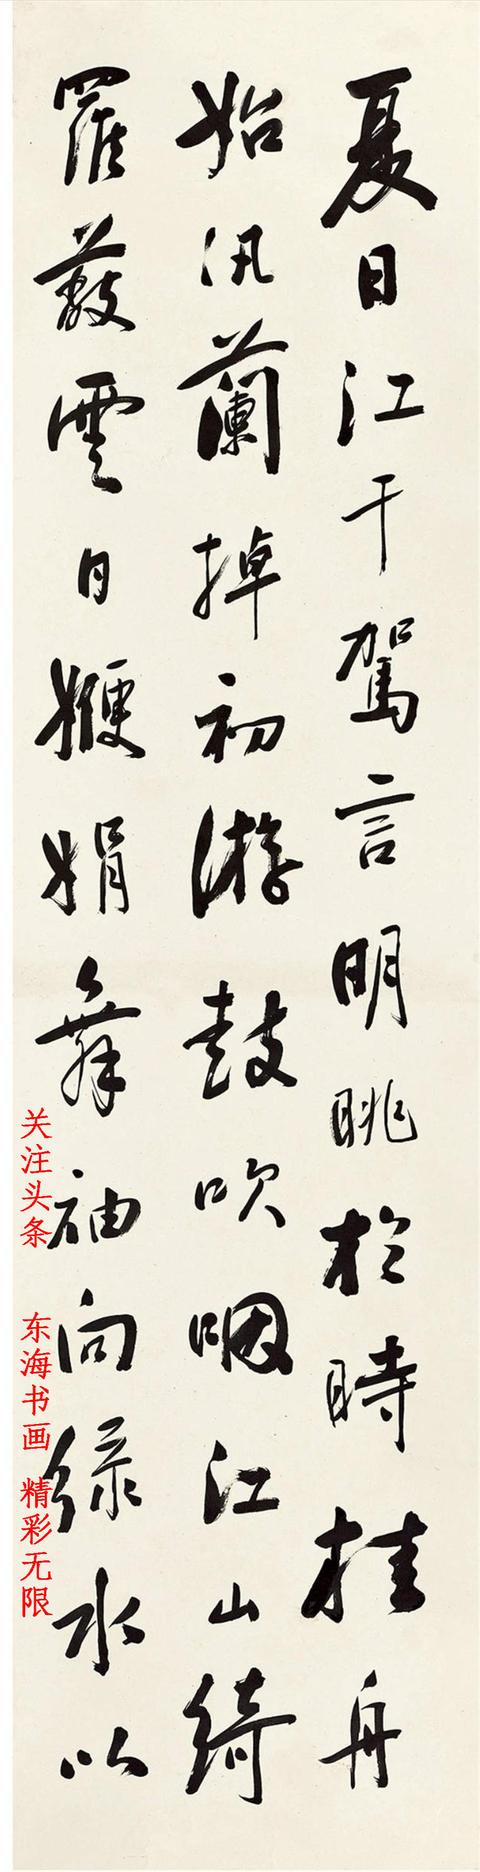 夏日江干駕言明眺於時桂舟
始汎蘭掉初游鼓吹咽江山綺
羅蔽雲日㛹娟舞袖向綠水以
关注头条 东海书画 精彩无限